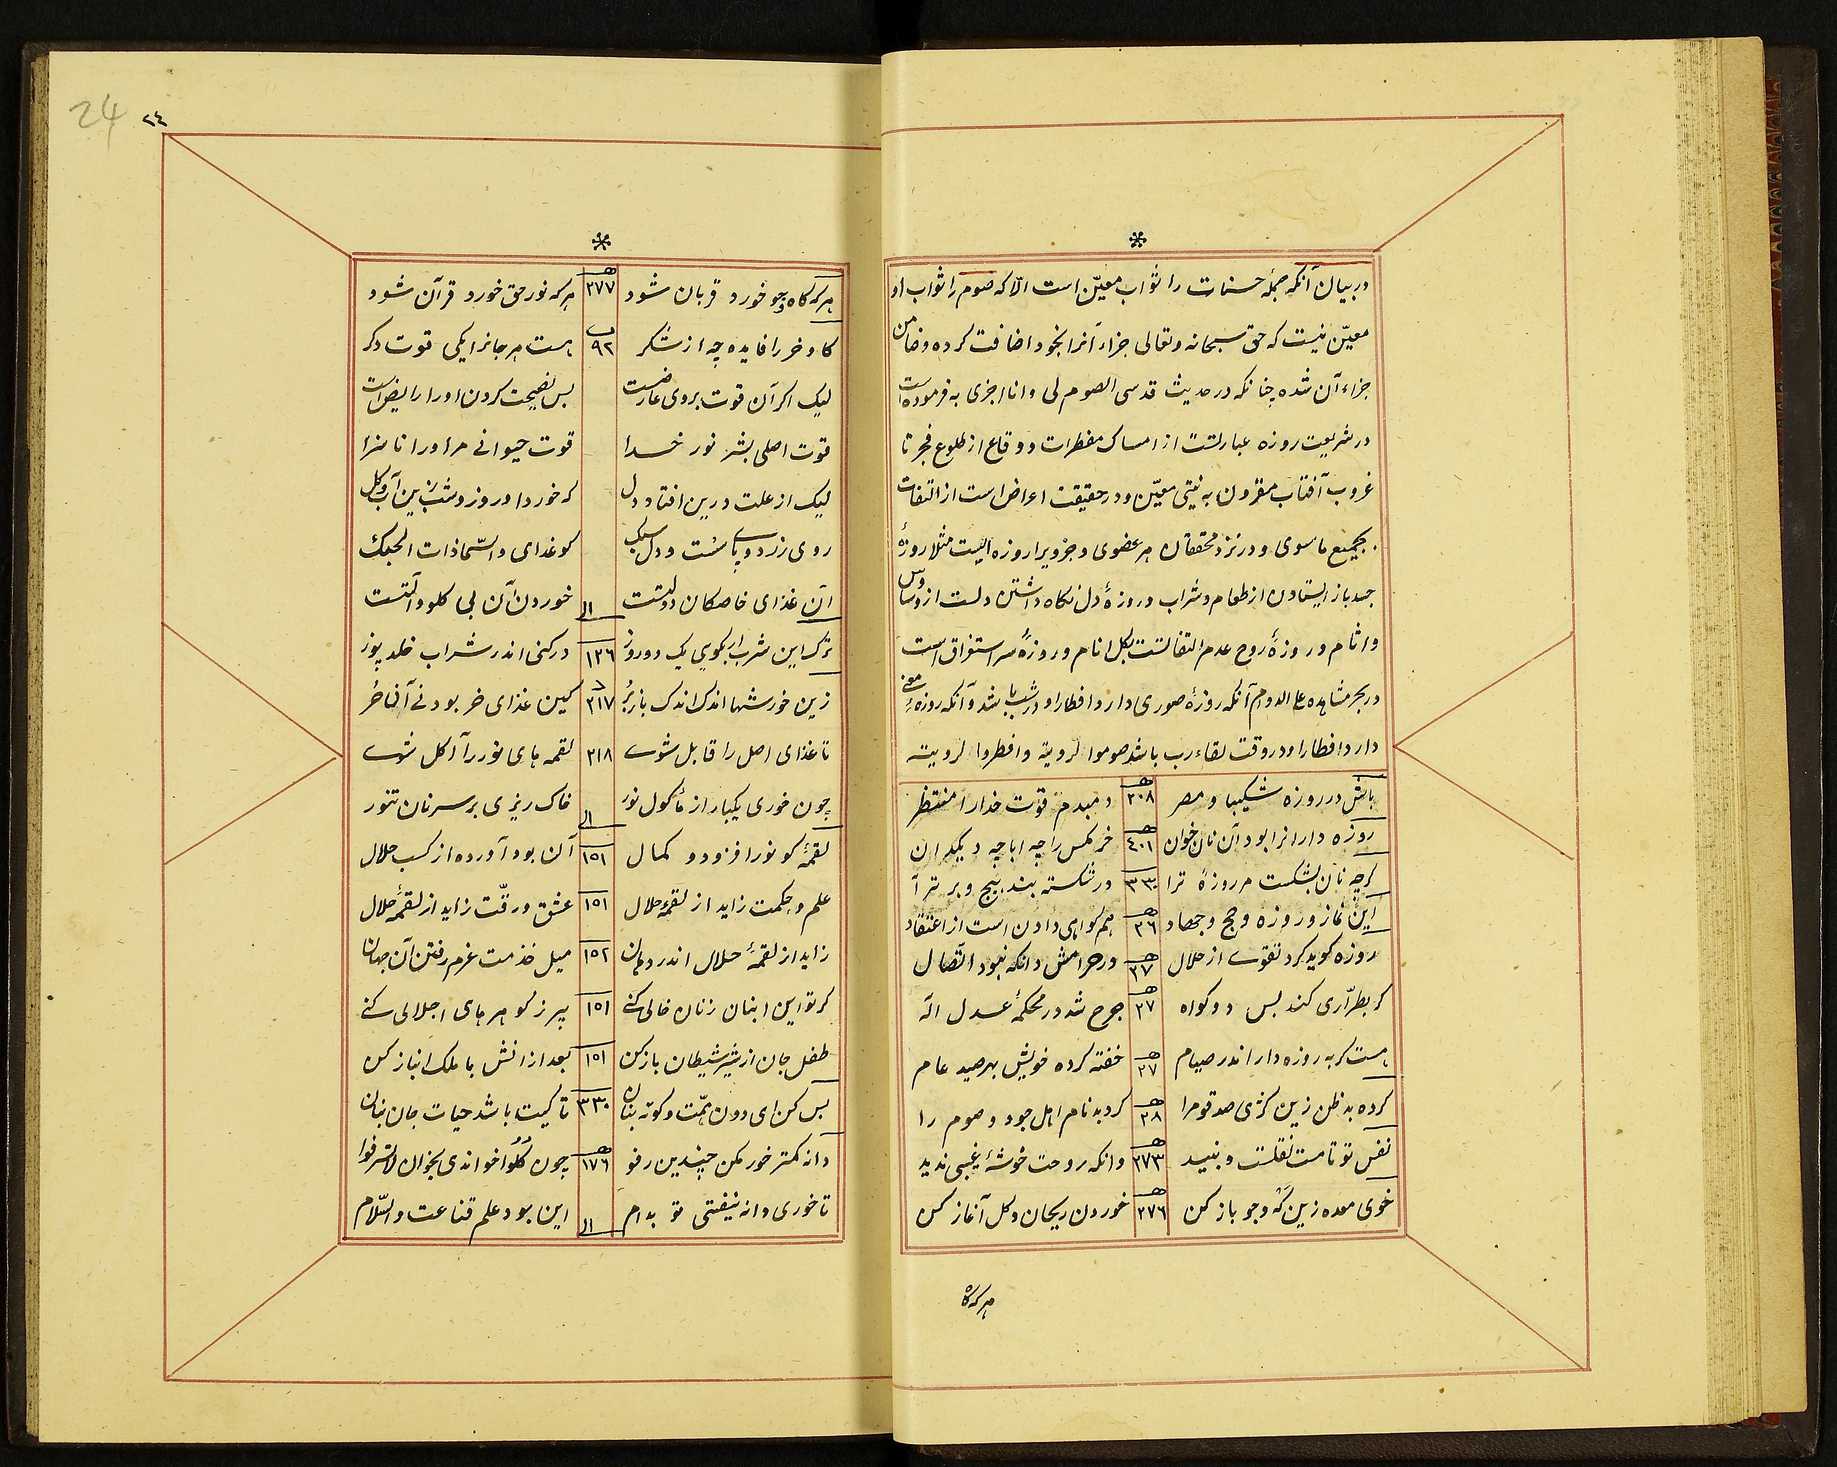 در بیان آنکه جملهٔ حسنات را ثواب معیّن است الّا که صوم را ثواب او
معیّن نیست که حق سبحانه و تعالی جزاء آنرا بخود اضافت کرده و ضامن
جزاء آن شده چنانکه در حدیث قدسی الصوم لی و انا اجزی به فرموده است
در شریعت روزه عبارتست از امساک مفطرات و وقاع از طلوع فجر تا
غروب آفتاب مقرون به نیتی معیّن و در حقیقت اعراض است از التفات
بجمیع ماسوی و در نزد محققان هر عضوی و جزویرا روزه ایست مثلا روزهٔ
جسد باز ایستادن از طعام و شراب و روزهٔ دل نکاه داشتن دلست از وساوس
و اثام و روزهٔ روح عدم التفاتست بکل انام و روزهٔ سر استغراق است
در بحر مشاهده علی الدوام آنکه روزهٔ صوری دارد افطار او در شب باشد و آنکه روزه معنی
دارد افطار او در وقت لقاء رب باشد صوموا لرویته و افطروا لرویته
باش در روزه شکیبا و مصر ٢٠٨ دمبدم قوّت خدا را منتظر
روزه دارانرا بود آن نان و خوان ٤٠١ خرمکس را چه ابا چه دیکدان
کرچه نان بشکست مر روزهٔ ترا ٣٣٠ در شکسته بند پیچ و برتر آ
این نماز و روزه و حج و جهاد ٣٦ هم کواهی دادن است از اعتقاد
روزه کوید کرد تقوی از حلال ٣٧ در حرامش دانکه نبود اتّصال
کر بطرّاری کند پس دو کواه ٣٧ جرح شد در محکمهٔ عدل اله
هست کربه روزه دار اندر صیام ٣٧ خفته کرده خویش بهر صید عام
کرده بد ظن زین کژی صد قوم را ٣٨ کرد بدنام اهل جود و صوم را
نفس تو تا مست نقلست و نبید ٢٧٣ دانکه روحت خوشهٔ غیبی ندید
خوی معده زین که و جو باز کن ٢٧٦ خوردن ریحان و کل آغاز کن
هر که کاه
24 ٢٤
هر که کاه و جو خورد قربان شود ٢٧٧ هر که نور حق خورد قرآن شود
کاو خر را فایده چه از شکر ٩٢ هست هر جانرا یکی قوت دکر
لیک اکر آن قوت بر وی عارضیست پس نصیحت کردن اورا رایضیست
قوت اصلی بشر نور خدا قوت حیوانی مر اورا ناسزا
لیک از علت درین افتاد دل که خورد او روز و شب زین آب و کل
روی زرد و پای سست و دل سبک کو غذای والسّما ذات الحبک
آن غذای خاصکان دولتست خوردن آن بی کلو و آلتست
ترک این شرب ار بکویی یک دو روز ١٢٦ در کنی اندر شراب خلد پوز
زین خورشها اندک اندک باز بُر ٢١٧ کین غذای خر بود نی آن حُر
تا غذای اصل را قابل شوی ٢١٨ لقمه های نور را آکل شوی
چون خوری یکبار از ماکول نور خاک ریزی بر سر نان تنور
لقمهٔ کو نور افزود و کمال ١٥١ آن بود آورده از کسب حلال
علم و حکمت زاید از لقمهٔ حلال ١٥١ عشق و رقّت زاید از لقمهٔ حلال
زاید از لقمهٔ حلال اندر دهان ١٥٢ میل خدمت عزم رفتن آن جهان
کر تو این انبان ز نان خالی کنی ١٥١ پر ز کوهرهای اجلالی کنی
طفل جان از شیر شیطان باز کن ١٥١ بعد از آنش با ملک انباز کن
بس کن ای دون همّت و کوته بنان ٣٣٠ تا کیت باشد حیات جان بنان
دانه کمتر خور مکن چندین رفو ١٧٦ چون کُلُوا خواندی بخوان لا تسرفوا
تا خوری دانه نیفتی تو بدام این بود علم قناعت والسّلام